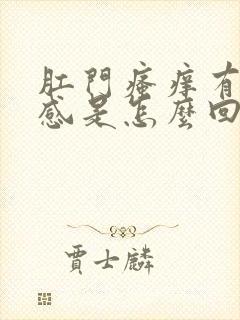 肛門瘙痒有
感是怎麼回
賈士麟